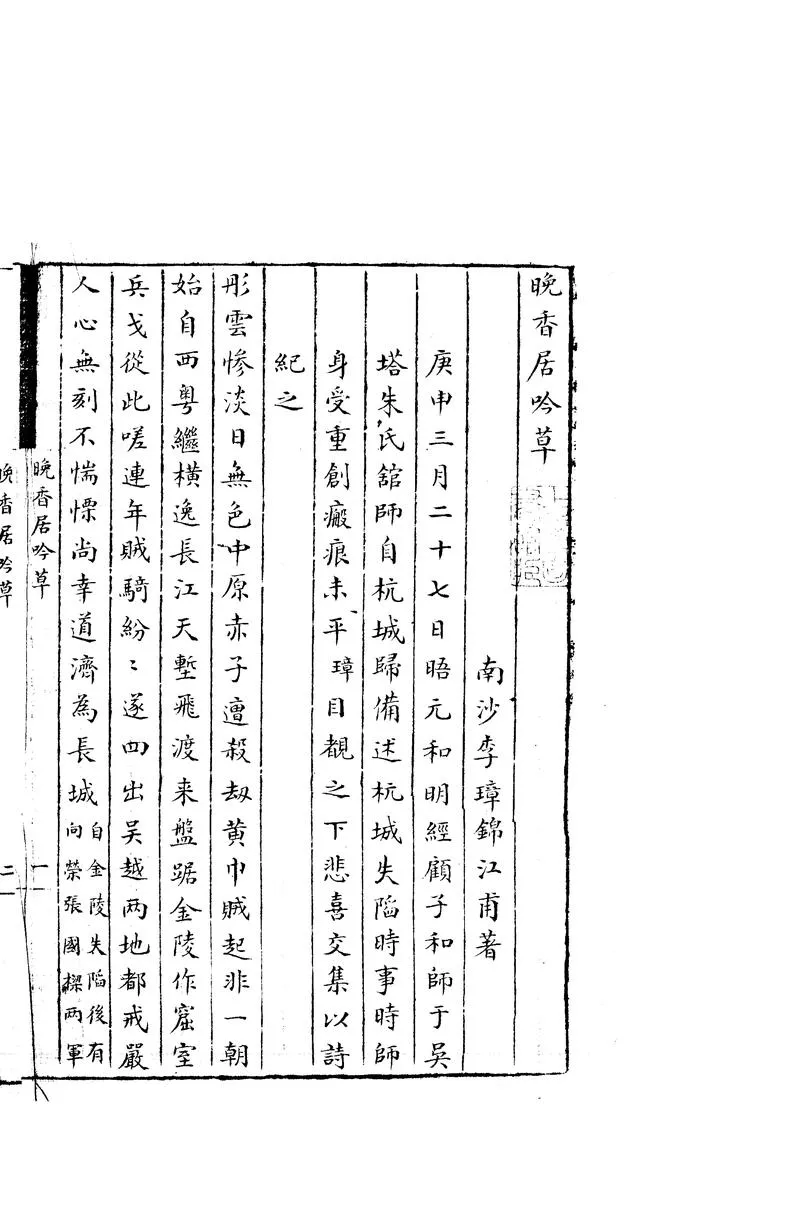 晚香居吟草
南沙李璋錦江甫著
庚申三月二十七日晤元和明經顧子和師于吳
塔朱氏舘師自杭城歸備述杭城失陷時事時師
身受重創瘢痕未平璋目覩之下悲喜交集以詩
紀之
彤雲慘淡日無色中原赤子遭殺劫黃巾賊起非一朝
始自西粵繼橫逸長江天塹飛渡来盤踞金陵作窟室
兵戈從此嗟連年賊騎紛〻遂四出吳越兩地都戒嚴
人心無刻不惴慄尚幸道濟為長城自金陵失陷後有向榮張國樑兩軍
晚香居吟草
一
晚香居吟草
二